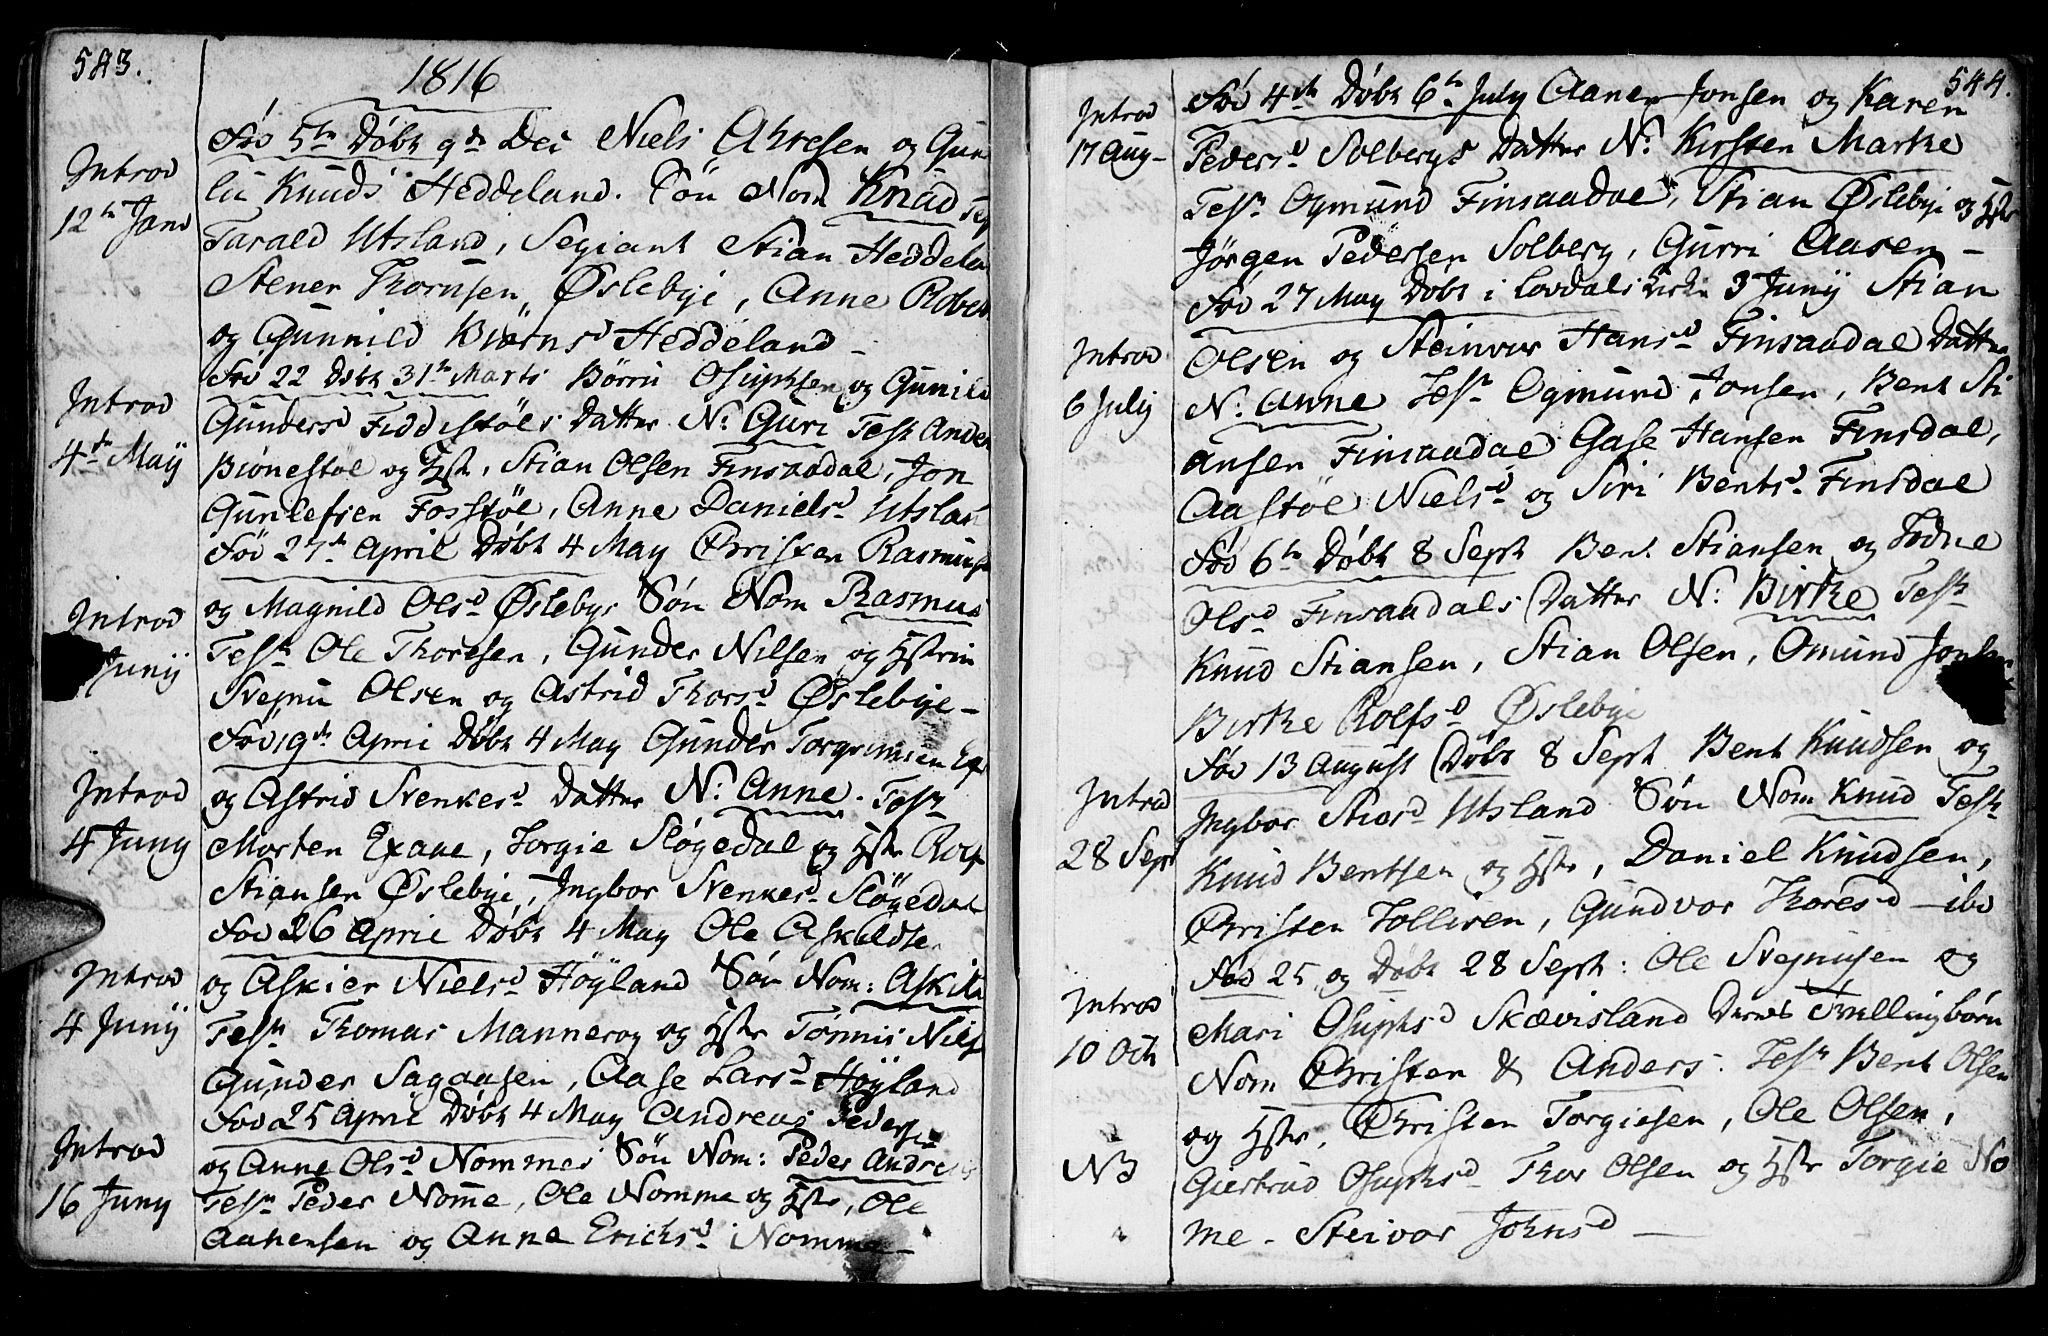 583.
1816
Introd
12te Jan
Fød 5te Døbt 9de Dec Niels Ahresen og Gun
lu Knuds Heddeland. Søn Nom Knud Tes
Tarald Utsland, Segiant Stian Heddela
Stener Thornsen, Øslebye, Anne Robe
og Gunnild Biørnsd Heddeland
Introd
4de Maÿ
Fød 22 Døbt 31te Marts Børru Osuphsen og Gunild
Gundersd Fiddestøls Datter N: Guri Test Ander
Biønestøl og Hstr, Stian Olsen Finsaadal, Jon
Gunlefsen Fosstøl, Anne Danielsd Utsland
Introd
Junÿ
Fød 27de April Døbt 4 May Christen Rasmus
og Magnild Olsd Øslebye Søn Nom Rasmus
Test Ole Thoresen, Gunder Nilsen og Hstr
Svejnu Olsen og Astrid Thorsd Øslebye
Introd
4 Juny
Fød 19de April Døbt 4 May Gunder Torgrimsen
og Astrid Svenkesd Datter N: Anne. Test
Morten Exaue, Torgie Sløgedal og Hstr Rolf
Stiansen Øslebye, Ingbor Svenkesd Sløgedal
Introd
4 Junÿ
Fød 26 April Døbt 4 May Ole Askildse
og Askier Nielsd Høyland Søn Nom: Askil
Test Thomas Mannerog og Hstr Tønnis Niels
Gunder Sagaasen, Aase Larsd Høyland
Introd
16 Juny
Fød 25 April Døbt 4 May Andreas Peders
og Anne Olsd Nommes Søn Nom: Peder Andre
Test Peder Nomme, Ole Nomme og Hstr, Ole
Aanensen og Anne Erichsd Nomme
544.
Introd
17 Aug
Fød 4de Døbt 6te July Aanen Jonsen og Karen
Pedersd Solbergs Datter N: Kirsten Marthe
Test Ogmund Finsaadal, Stian Øslebye og Hstr
Jørgen Pedersen Solberg, Gurri Aasen
Introd
6 July
Fød 27 May Døbt i Lovdals Kirke 3 Junÿ Stian
Olsen og Steinvor Hansd Finsaadal Datter
N: Anne Test Ogmund Jonsen, Bent Sti
ansen Finsaadal Gase Hansen Finsdal,
Aastøl Nielsd og Siri Bentsd Finsdal
Fød 6te Døbt 8 Sept Bent Stiansen og Tødne
Olsd Finsaadals Datter N: Birthe Test
Knud Stiansen, Stian Olsen, Omund Jonsen
Birthe Rolfsd Øslebye
Introd
28 Sept
Fød 13 August Døbt 8 Sept Bent Knudsen og
Ingbor Stiesd Utsland Søn Nom Knud Test
Knud Bentsen og Hstr, Daniel Knudsen,
Christen Tollisen, Gundvor Thoresd ibd
Introd
10 Oct
Fød 25 og Døbt 28 Sept: Ole Svejnusen og
Mari Osuphsd Skævisland Deres Tvillingbørn
Nom Christen & Anders. Test Bent Olsen
og Hstr, Christen Torgiesen, Ole Olsen,
NB
Giertrud Osuphsd Thor Olsen og Hstr Torgie No
me - Steivor Johnsd